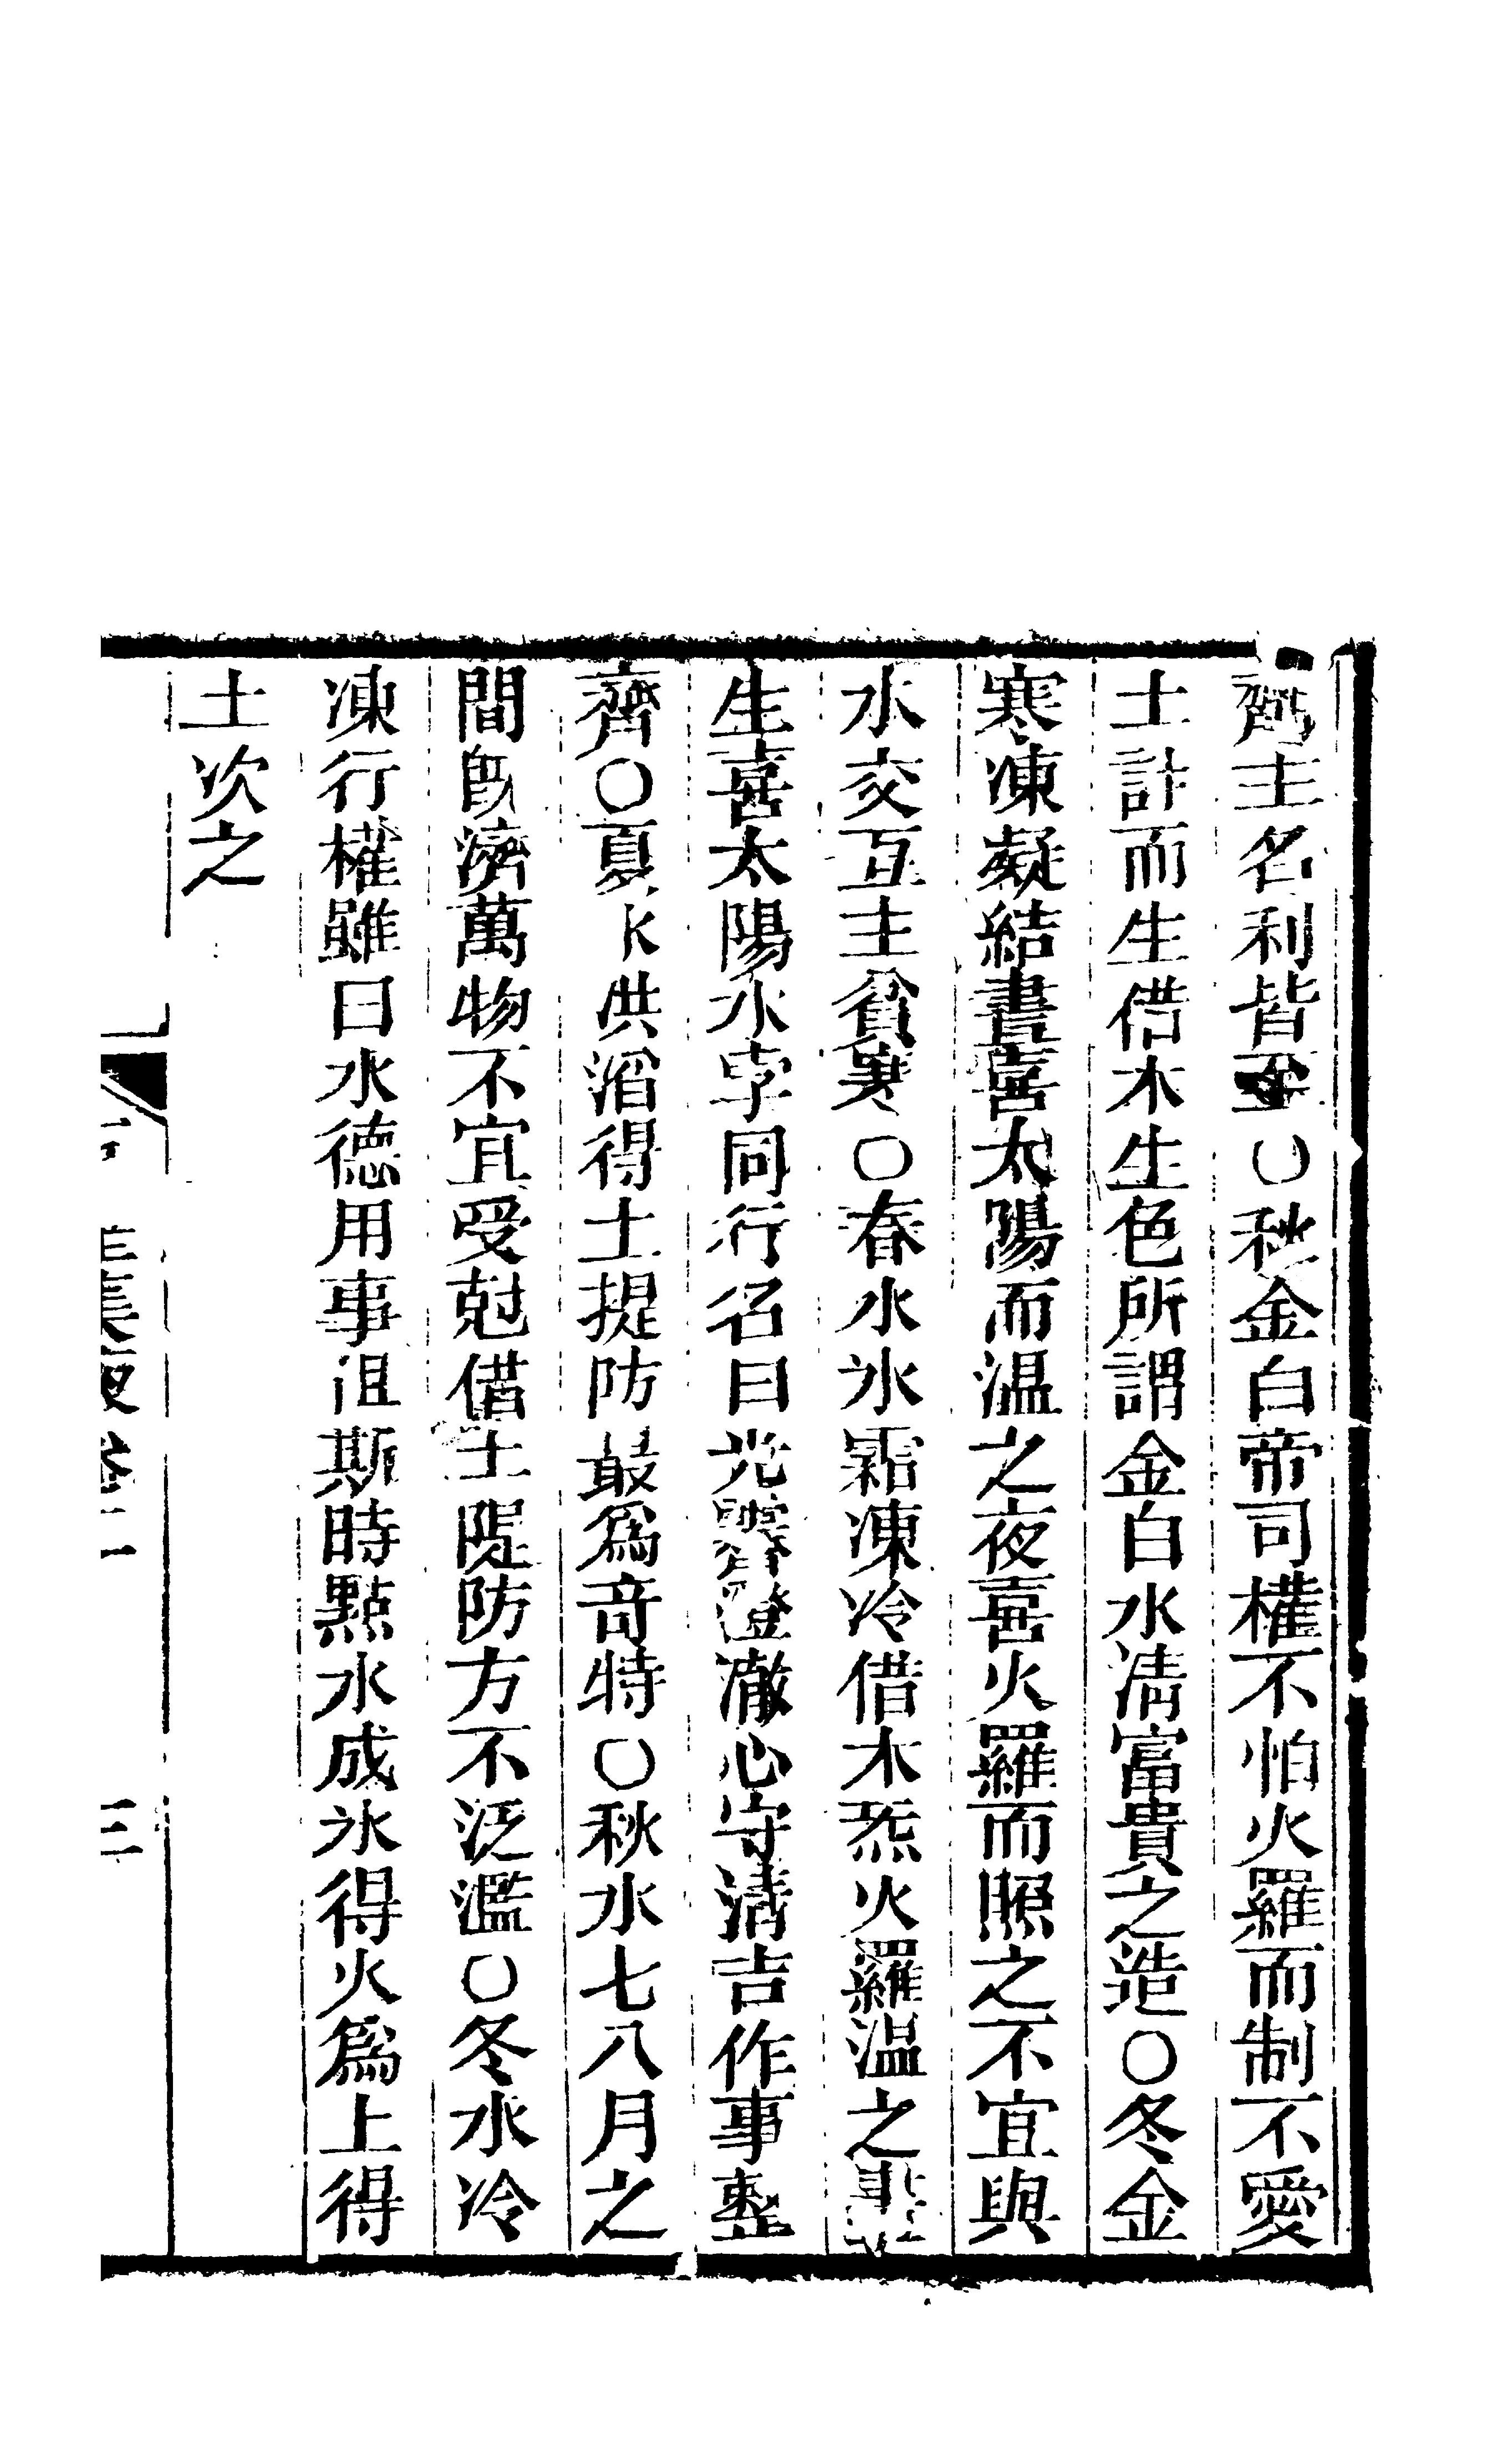 齊主名利皆全〇秋金白帝司權不怕火羅而制不愛
土計而生借木生色所謂金白水淸富貴之造〇冬金
寒凍凝結晝喜太陽而温之夜喜火羅而照之不宜與
水交互主貧寒〇春水氷霜凍冷借木炁火羅温之
生喜太陽水孛同行名曰光霽澄澈心守清吉作事整
齊〇夏水洪滔得土提防最爲竒特〇秋水七八月之
間旣濟萬物不宜受尅借土隄防方不泛濫〇冬水冷
凍行權雖曰水德用事徂斯時點水成氷得火爲上得
土次之
集腋卷二 三